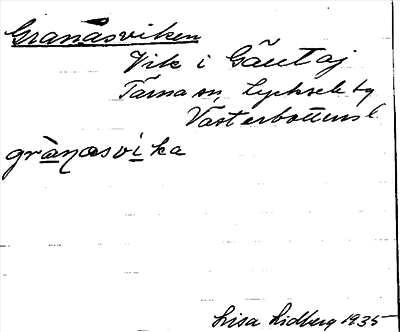 Granäsviken
Vik i Gäutaj
Tärna sn, Lycksele tg
Västerbottens l.
grànæsvika
Lisa Lidberg 1935